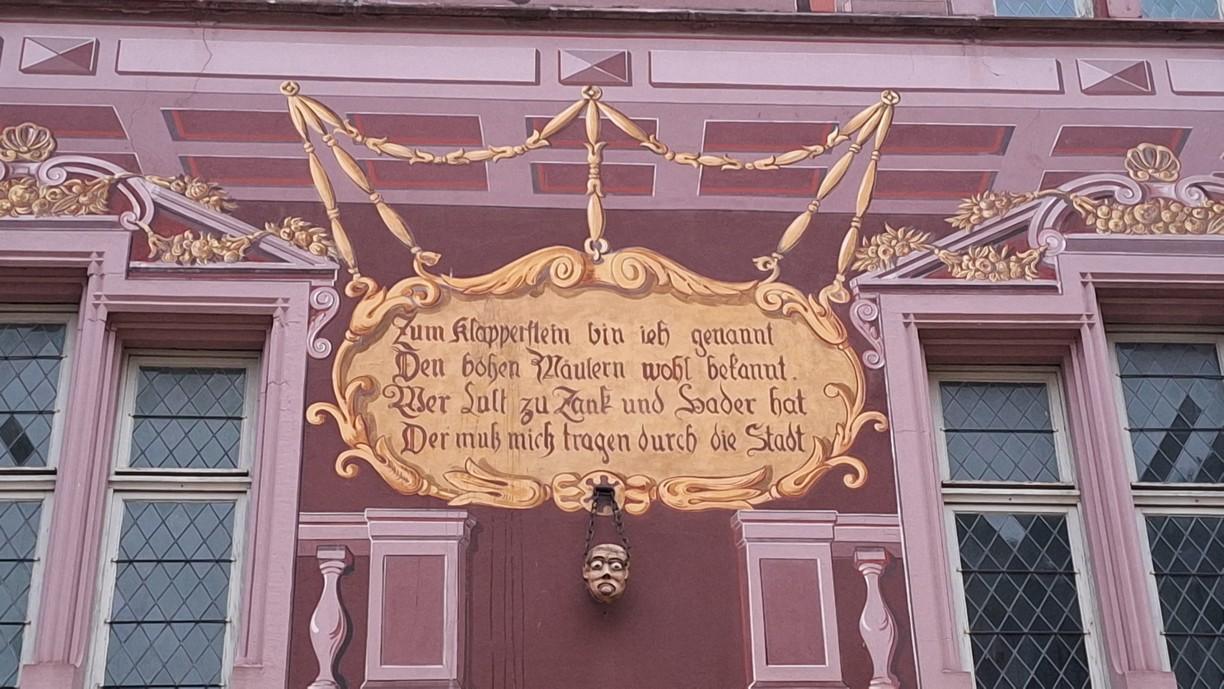 Zum Klapperstein bin ich genannt
Den boßen Mäulern wohl bekannt.
Wer Lust zu Zank und Hader hat
Der muß mich tragen durch die Stadt